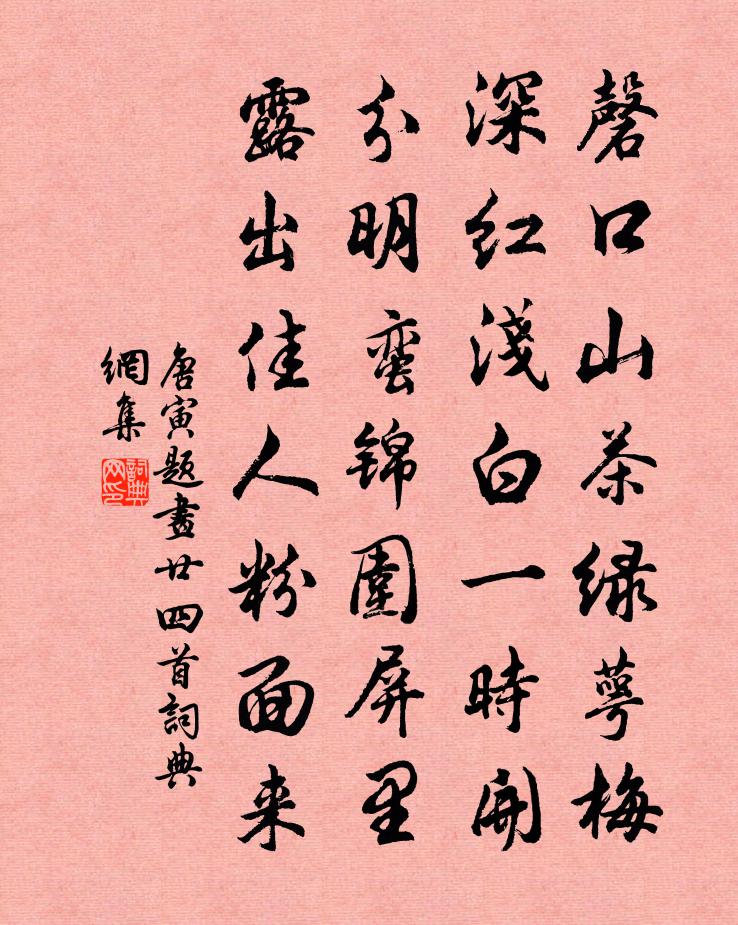 磬口山茶绿萼梅
深红淺白一時開
分明蛮锦圍屏里
露出佳人粉面来
唐寅题畫廿四首詞典
網集
詞典网印